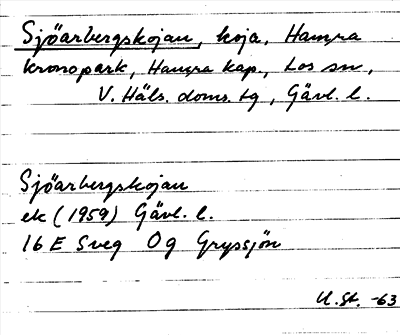 Sjöarbergskojan, koja, Hamra
kronopark, Hamra kap., Los sn,
V. Häls. doms. tg, Gävl. l.
Sjöarbergskojan
ek (1959) Gävl. l.
16 E Sveg Og Gryssjön
U.St. -63